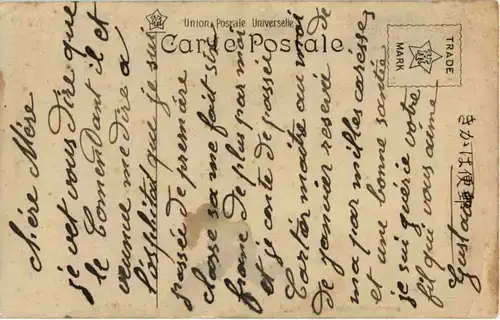 Union Postale Universelle
Carte Postale.
TRADE
MARK
きかは便郵
chère Mère
je vet vous dire que
le Comendant il et
venue me dire a
l'osphital que je suis
passée de première
classe sa me fait six
franc de plus par moi
et je conte de passée
Cartier maitre au moi
de janvier resevé
ma par milles caresses
et une bonne santée
je sui guerie votre
fil qui vous aime
Gustave